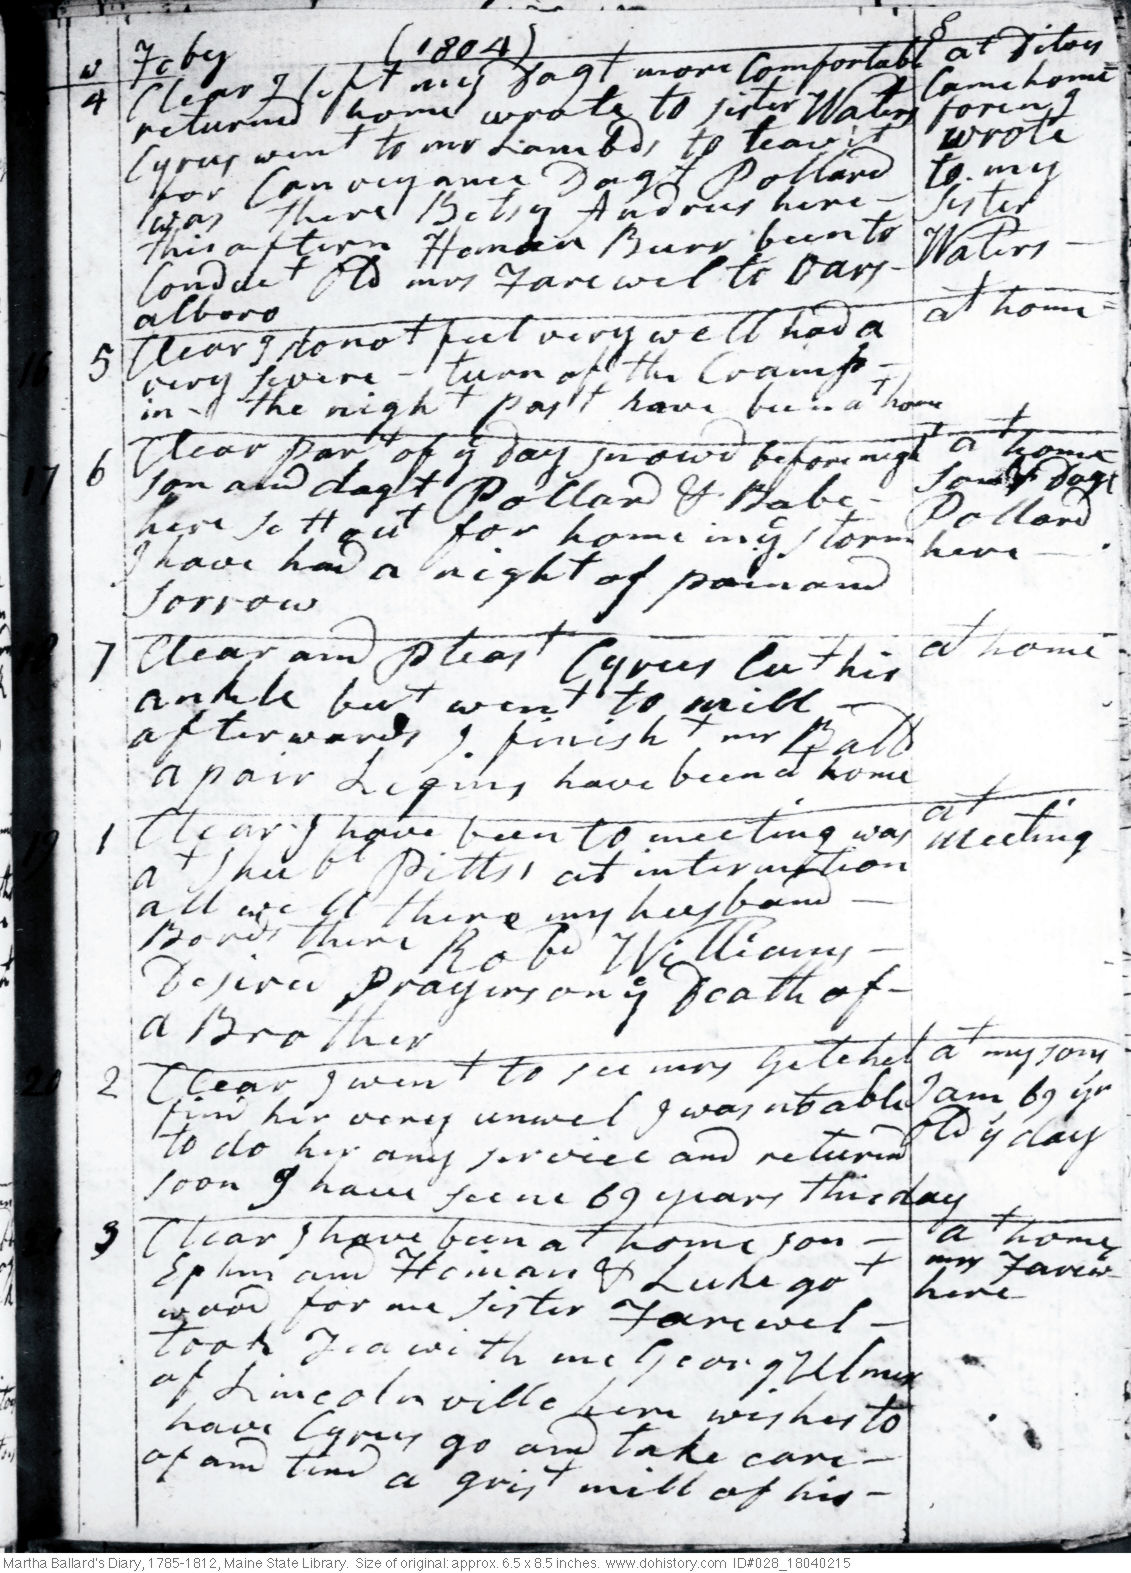 Feby (1804)
w
4 Clear I left my Dagt more Comfortable at Ditoes
returned home wrote to sister Waters Came home
Cyrus went to mr Lambds to leav it foren I
for Conveyance Dagt Pollard wrote
was there Betsy Andrus here - to my
this aftern Heman Burr been to sister
Conduct old mrs Farewel to Vars- Waters -
alboro
5 Clear I do not feel very well had a at home
16 very severe - turn of the Cramp -
in - the night past have been at home
6 Clear part of ye day snowd before night at home
17 son and dagt Pollard & Babe - son & Dagt
here sett out for home in ye storm Pollard
I have had a night of pain and here -
sorrow
18 7 Clear and pleast Cyrus Cut his at home
ankle but went to mill -
afterwards I finisht mr Ball
a pair Legins have been at home
19 1 Clear I have been to meeting was at
at Shub Pitts's at intermition meeting
all well there my husband -
Bords there Robd Williams -
Desired prayers on ye Death of -
a Brother
20 2 Clear I went to see mrs Getchel at my sons
find her very unwel I was not able I am 69 yr
to do her any service and returnd old ye day
soon I have seene 69 years this day
21 3 Clear I have been at home son - at home
Ephm and Heman & Luke got mrs Farew-
wood for me sister Farewel - here
took Tea with me Georg Ulmer
of Lincolnville here wishes to
have Cyrus go and take care -
of and tend a grist mill of his -
Martha Ballard's Diary, 1785-1812, Maine State Library. Size of original: approx. 6.5 x 8.5 inches. www.dohistory.com ID#028_18040215